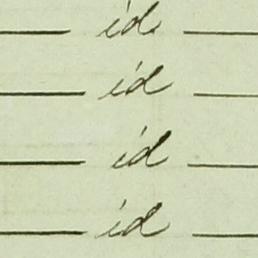 — id. —
— id —
— id —
— id —